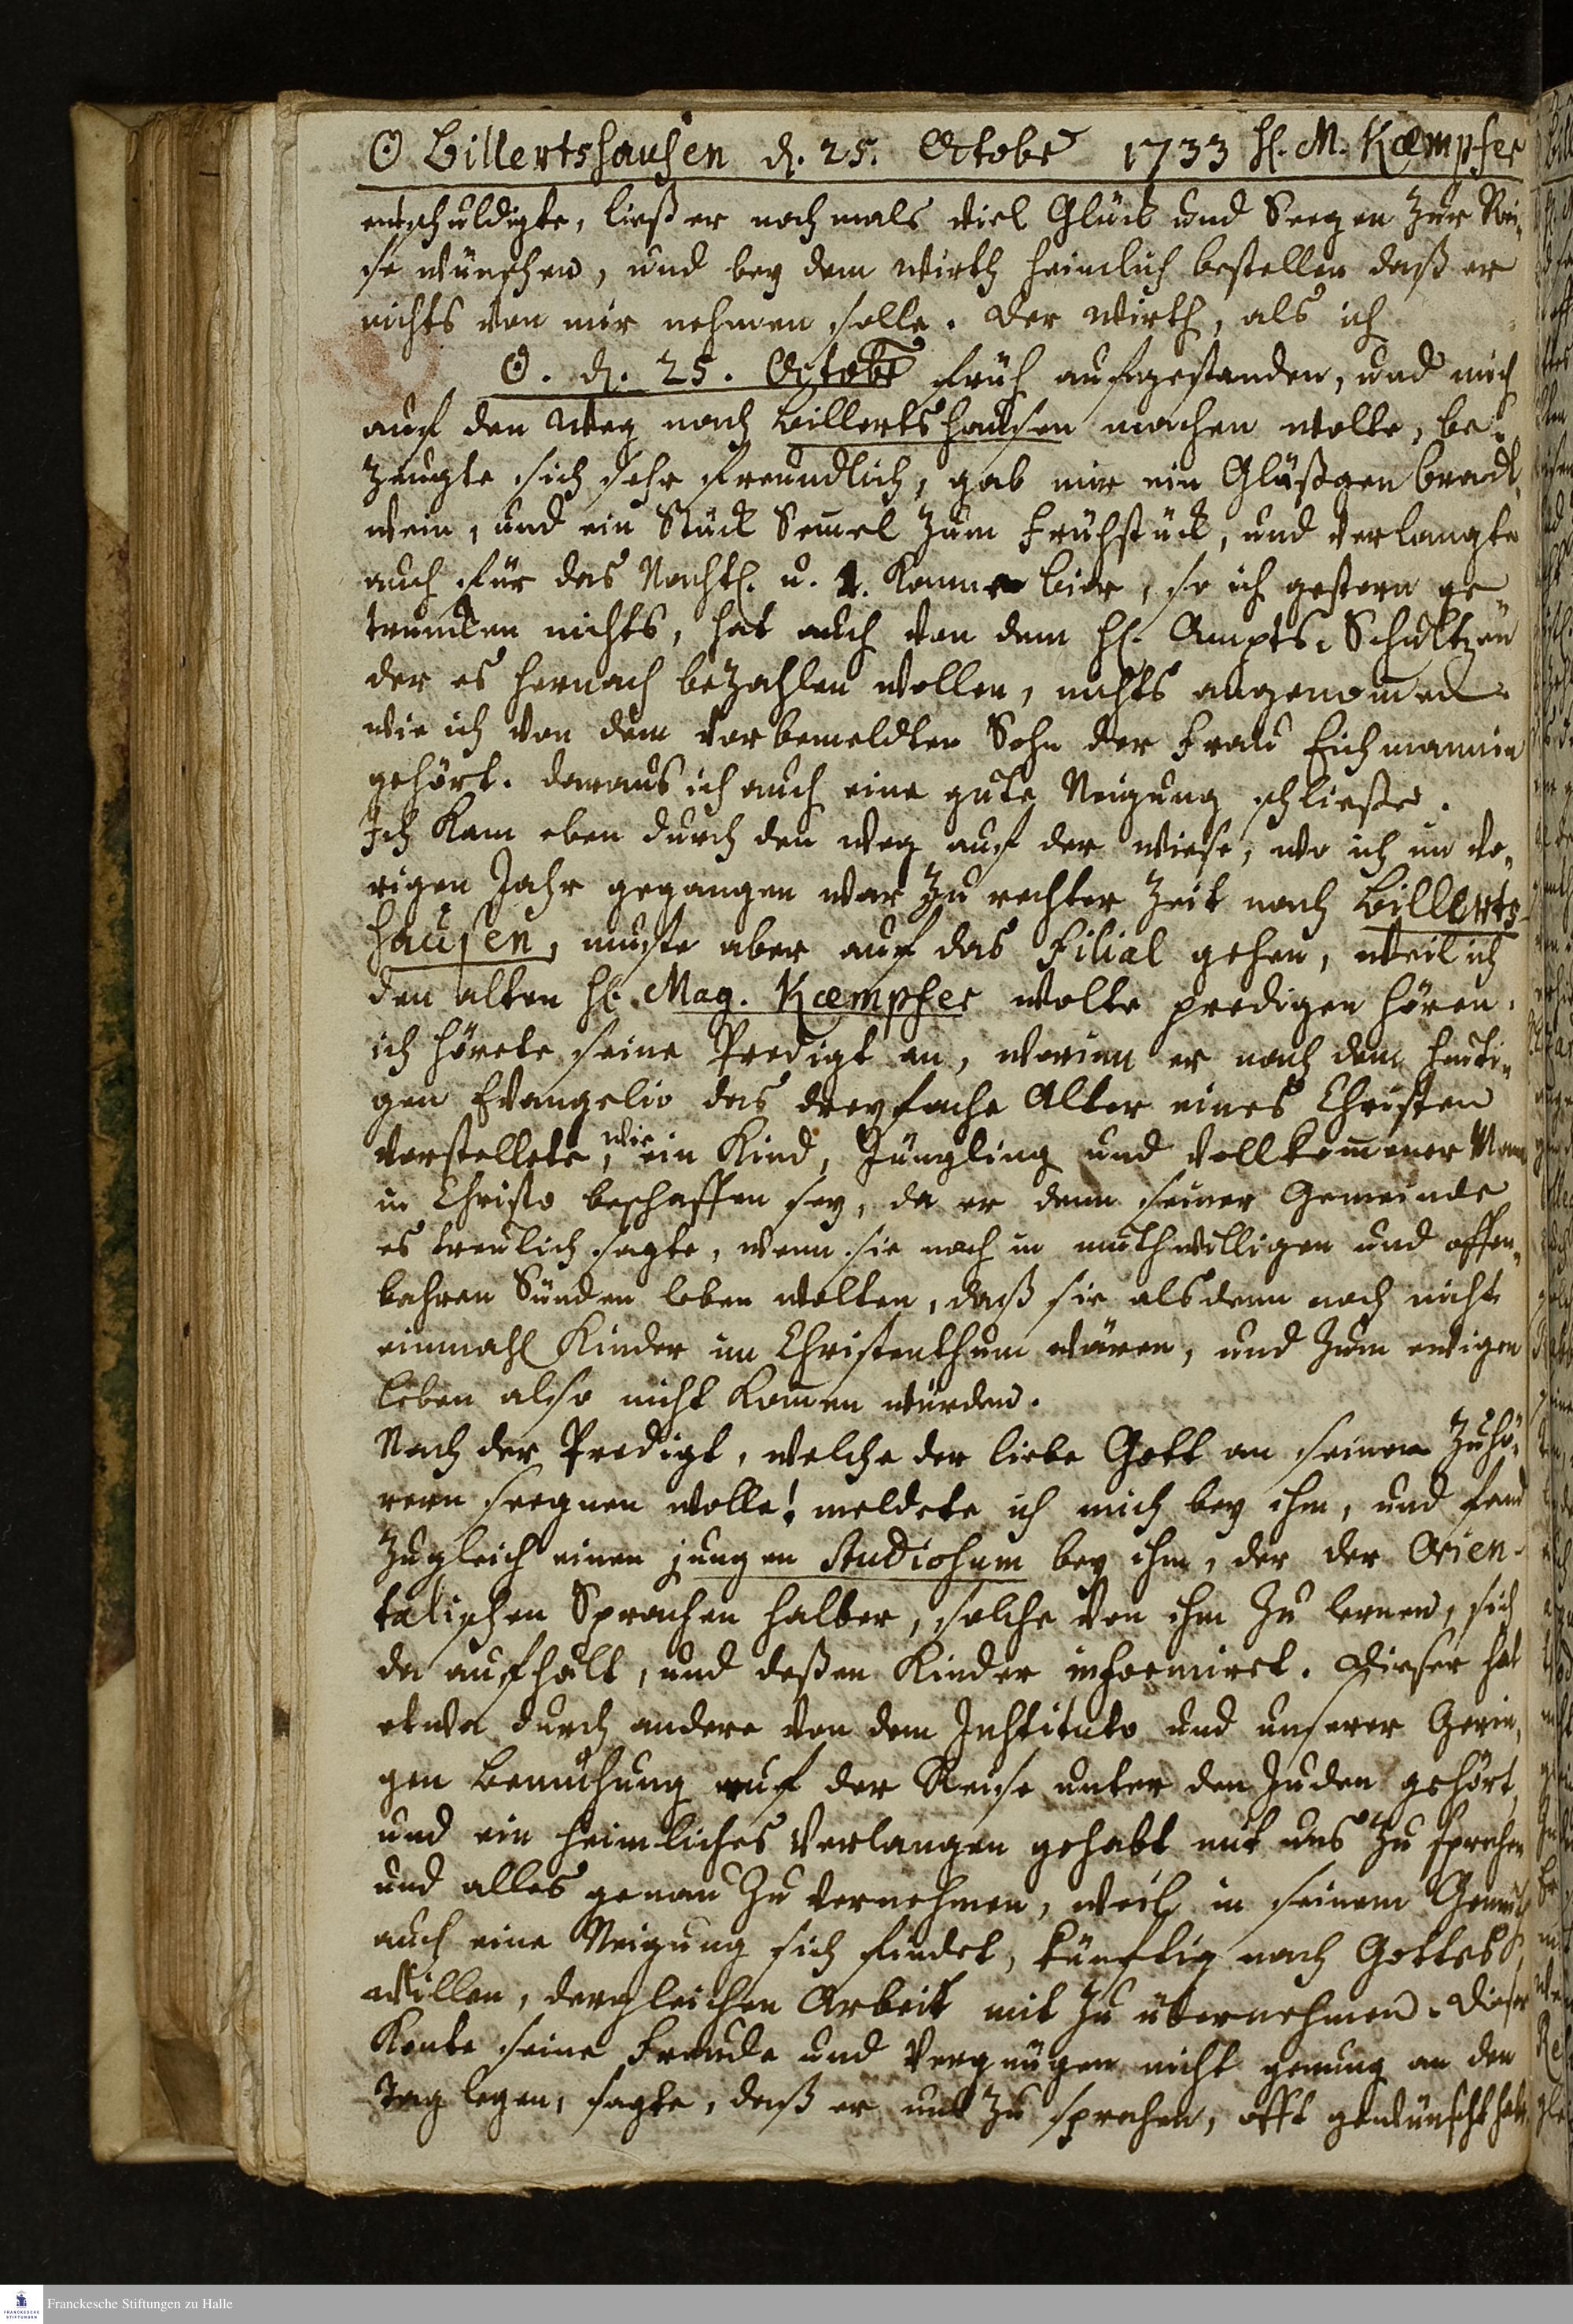 ☉ Billertshausen d. 25. Octobr 1733 H. M. Kæmpfer
entschuldigte, ließ er nochmals viel Glück und Seegen zur Rei-
se wünschen, und bey dem Wirth heimlich bestellen daß er
nichts von mir nehmen solle. Der Wirth, als ich
☉. d. 25. Octobr früh aufgestanden, und mich
auf den Weg nach Billertshausen machen wolte, be-
zeugte sich sehr freundlich, gab mir ein Gläßgen Brandt-
wein, und ein Stück Semel zum Frühstück, und verlangte
auch für das Nachtl. u. 1. Kanne Bier, so ich gestern ge
truncken nichts, hat auch von dem H. Ampts-Schultzen
der es hernach bezahlen wollen, nichts angenomen.
wie ich von dem vorbemeldten Sohn der Frau Eichmannin
gehört. daraus ich auch eine gute Neigung schließe.
Ich kam eben durch den Weg auf der Wiese, wo ich im vo-
rigen Jahr gegangen war zu rechter Zeit nach Billerts-
hausen, muste aber auf das Filial gehen, weil ich
den alten H. Mag. Kæmpfer wolte predigen hören.
ich hörete seine Predigt an, worinn er nach dem heuti-
gen Evangelio das dreyfache Alter eines Christen
vorstellete, wie ein Kind, Jüngling und vollkomener Mann
in Christo beschaffen sey, da er denn seiner Gemeinde
es treulich sagte, wenn sie noch in muthwilligen und offen-
bahren Sünden leben wolten, daß sie alsdenn noch nicht
einmahl Kinder im Christenthum wären, und zum ewigen
Leben also nicht komen würden.
Nach der Predigt, welche der liebe Gott an seinen Zuhö-
rern seegnen wolle! meldete ich mich bey ihm, und fand
zugleich einen jungen Studiosum bey ihm, der der Orien-
talischen Sprachen halber, solche von ihm zu lernen, sich
da aufhält, und deßen Kinder informiret. Dieser hat
etwa durch andere von dem Instituto und unserer Gerin-
gen Bemühung auf der Reise unter den Juden gehört,
und ein heimliches Verlangen gehabt mit uns zu sprechen
und alles genau zu vernehmen, weil in seinem Gemüth
auch eine Neigung sich findet, künftig nach Gottes
Willen, dergleichen Arbeit mit zu übernehmen. Dieser
Konte seine Freude und Vergnügen nicht genung an den
Tag legen, sagte, daß er uns zu sprechen, offt gewünscht hätte
Franckesche Stiftungen zu Halle